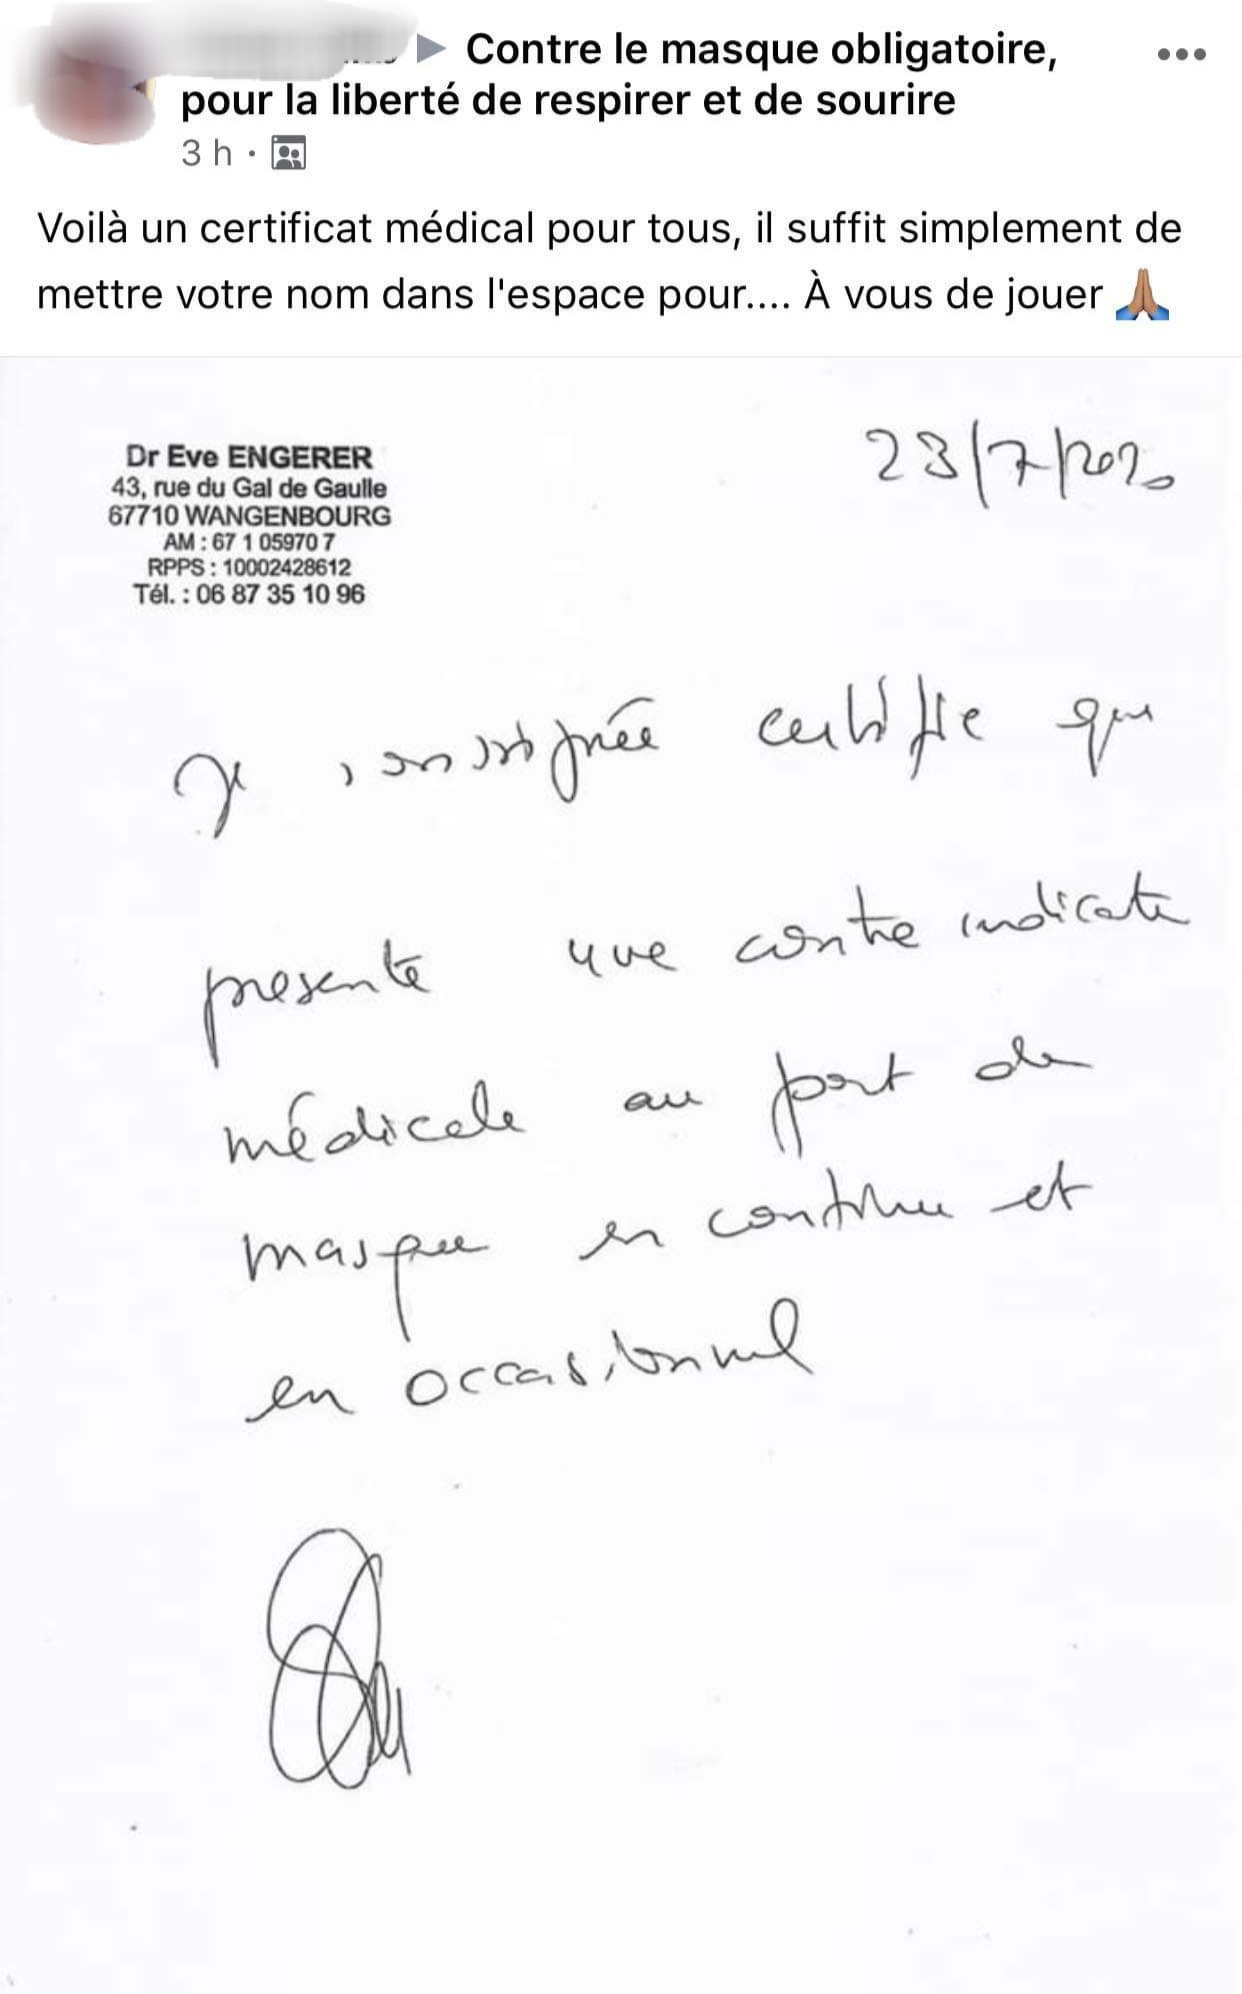 Contre le masque obligatoire,
pour la liberté de respirer et de sourire
3 h ·
Voilà un certificat médical pour tous, il suffit simplement de
mettre votre nom dans l'espace pour.... À vous de jouer 🙏🏽
Dr Eve ENGERER
43, rue du Gal de Gaulle
67710 WANGENBOURG
AM : 67 1 05970 7
RPPS : 10002428612
Tél. : 06 87 35 10 96
23/7/2020
Je, soussignée certifie que
présente une contre indication
médicale au port de
masque en continu et
en occasionnel